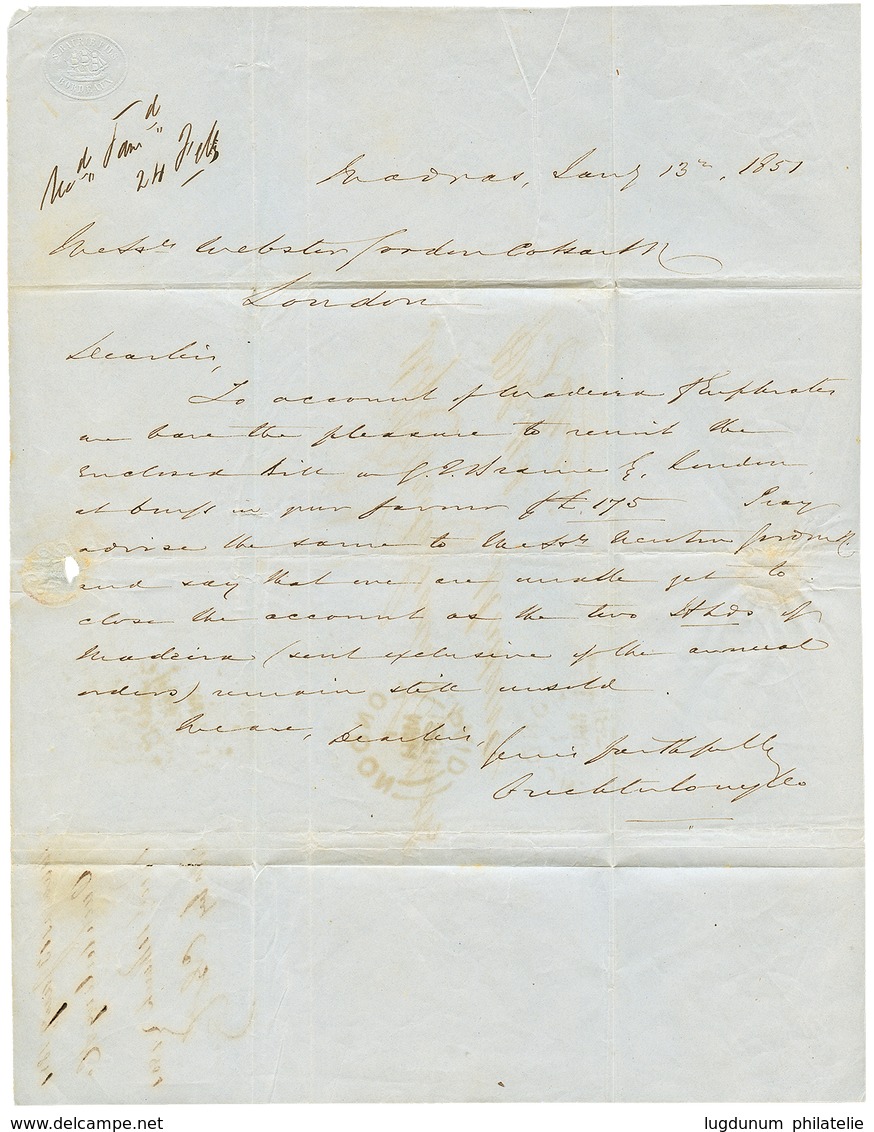 BORDEAUX
24 Feb
Madras, Jany 13th, 1851
Messrs Webster Gordon Cossart &
London
Dear Sirs,
To account of Madeira p Euphrates
we have the pleasure to remit the
enclosed Bill on London
at in your favour for £.175 Pray
advise the same to Messrs Newton Gordon &
and say that we are unable yet to
close the account as the two Hhds of
Madeira (sent exclusive of the annual
orders) remain still unsold.
We are, Dear Sirs,
Yours faithfully
PAID
LONDON
www.delcampe.net
lugdunum philatelie